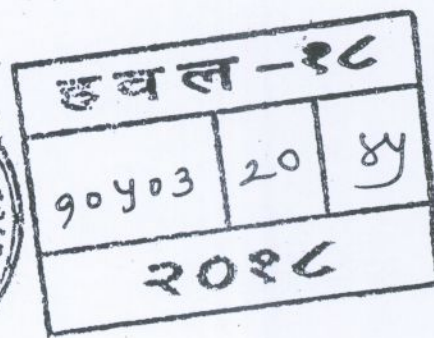 हवल -१८
१०५०३ २० ४५
२०१८